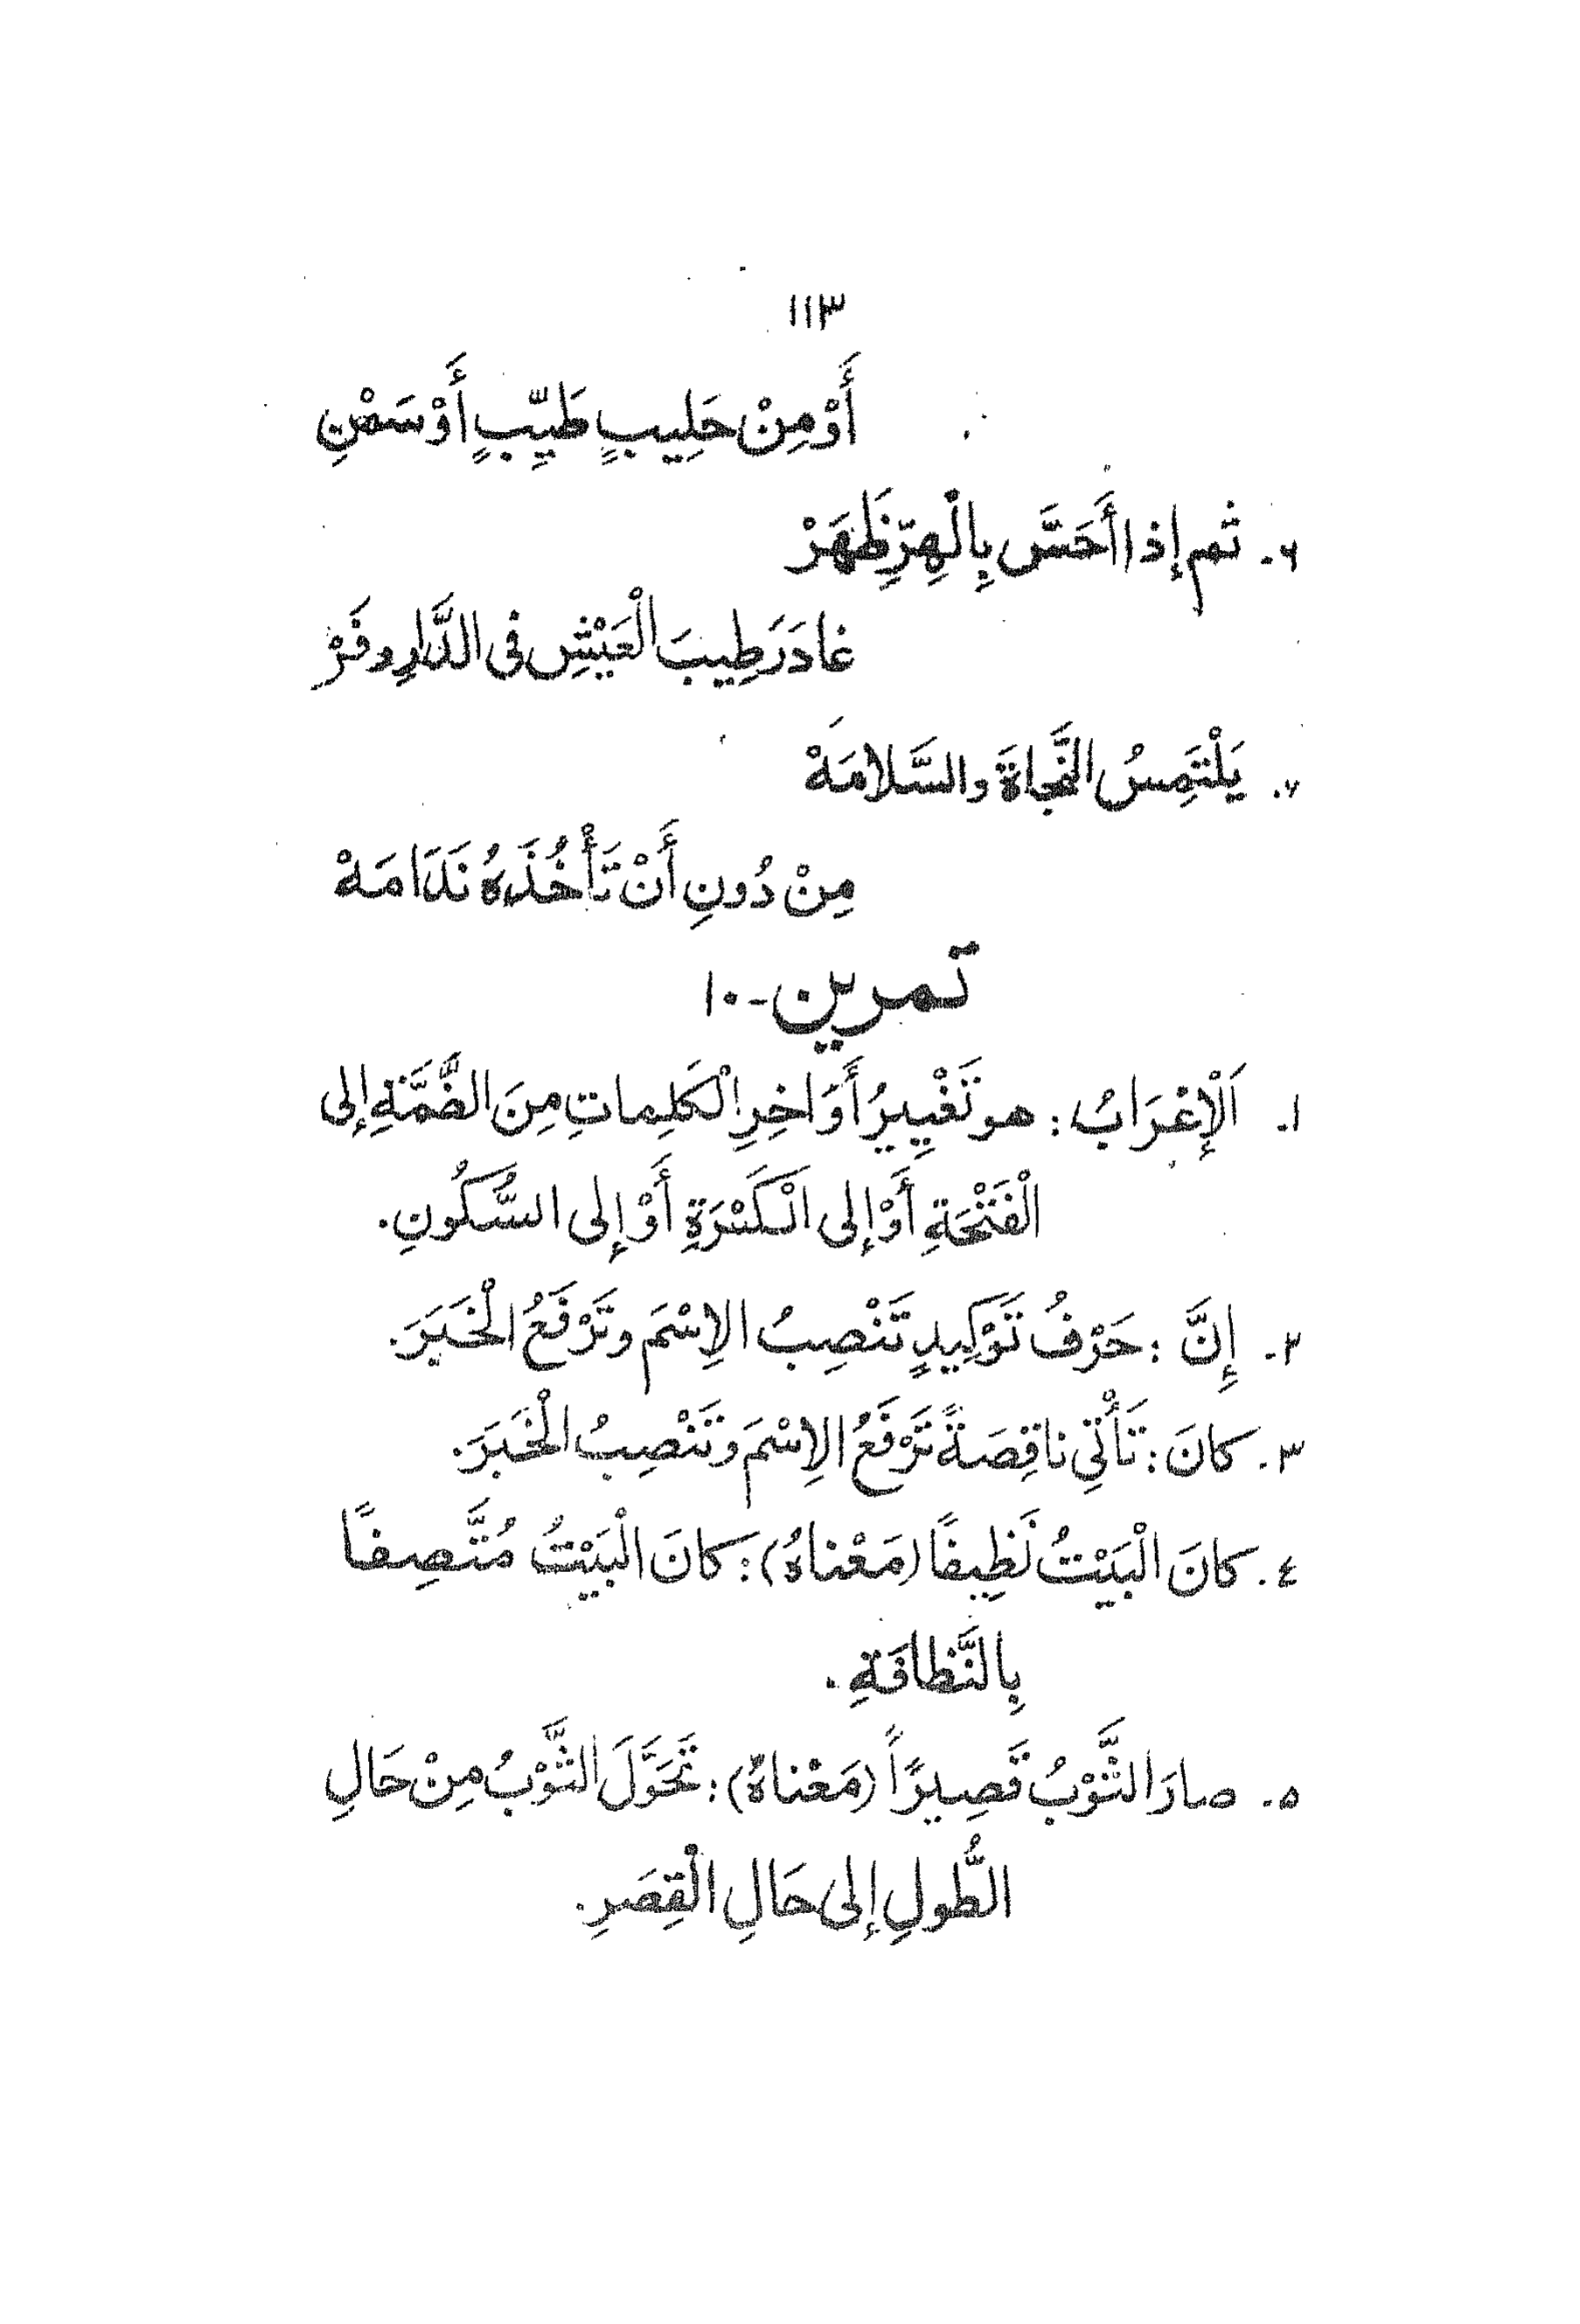 ١١٣
أَوْ مِنْ حَلِيبٍ طَيِّبٍ أَوْ سَمْنِ
٦. ثم إذا أَحَسَّ بِالْهِرِّ ظَهَرْ
غادَرَ طِيبَ الْعَيْشِ فى الدَّارِ وفَرْ
٧. يَلْتَمِسُ النَّجاةَ والسَّلامَهْ
مِنْ دُونِ أَنْ تَأْخُذَهُ نَدَامَهْ
تمرين - ١٠
١. اَلْإِعْرَابُ : هو تَغْيِيرُ أَوَاخِرِ الْكَلِماتِ مِنَ الضَّمَّةِ إلى
الْفَتْحَةِ أَوْ إلى الْكَسْرَةِ أَوْ إلى السُّكُونِ.
٢. إِنَّ : حَرْفُ تَوْكِيدٍ تَنْصِبُ الاِسْمَ وتَرْفَعُ الْخَبَرَ.
٣. كانَ : تَأْتِي ناقِصَةً تَرْفَعُ الاِسْمَ وتَنْصِبُ الْخَبَرَ.
٤. كانَ الْبَيْتُ نَظِيفًا (مَعْناهُ) : كانَ الْبَيْتُ مُتَّصِفًا
بِالنَّظافَةِ .
٥. صارَ الثَّوْبُ قَصِيرًاً (مَعْناهُ) : تَحَوَّلَ الثَّوْبُ مِنْ حَالِ
الطُّولِ إلى حَالِ الْقِصَرِ.